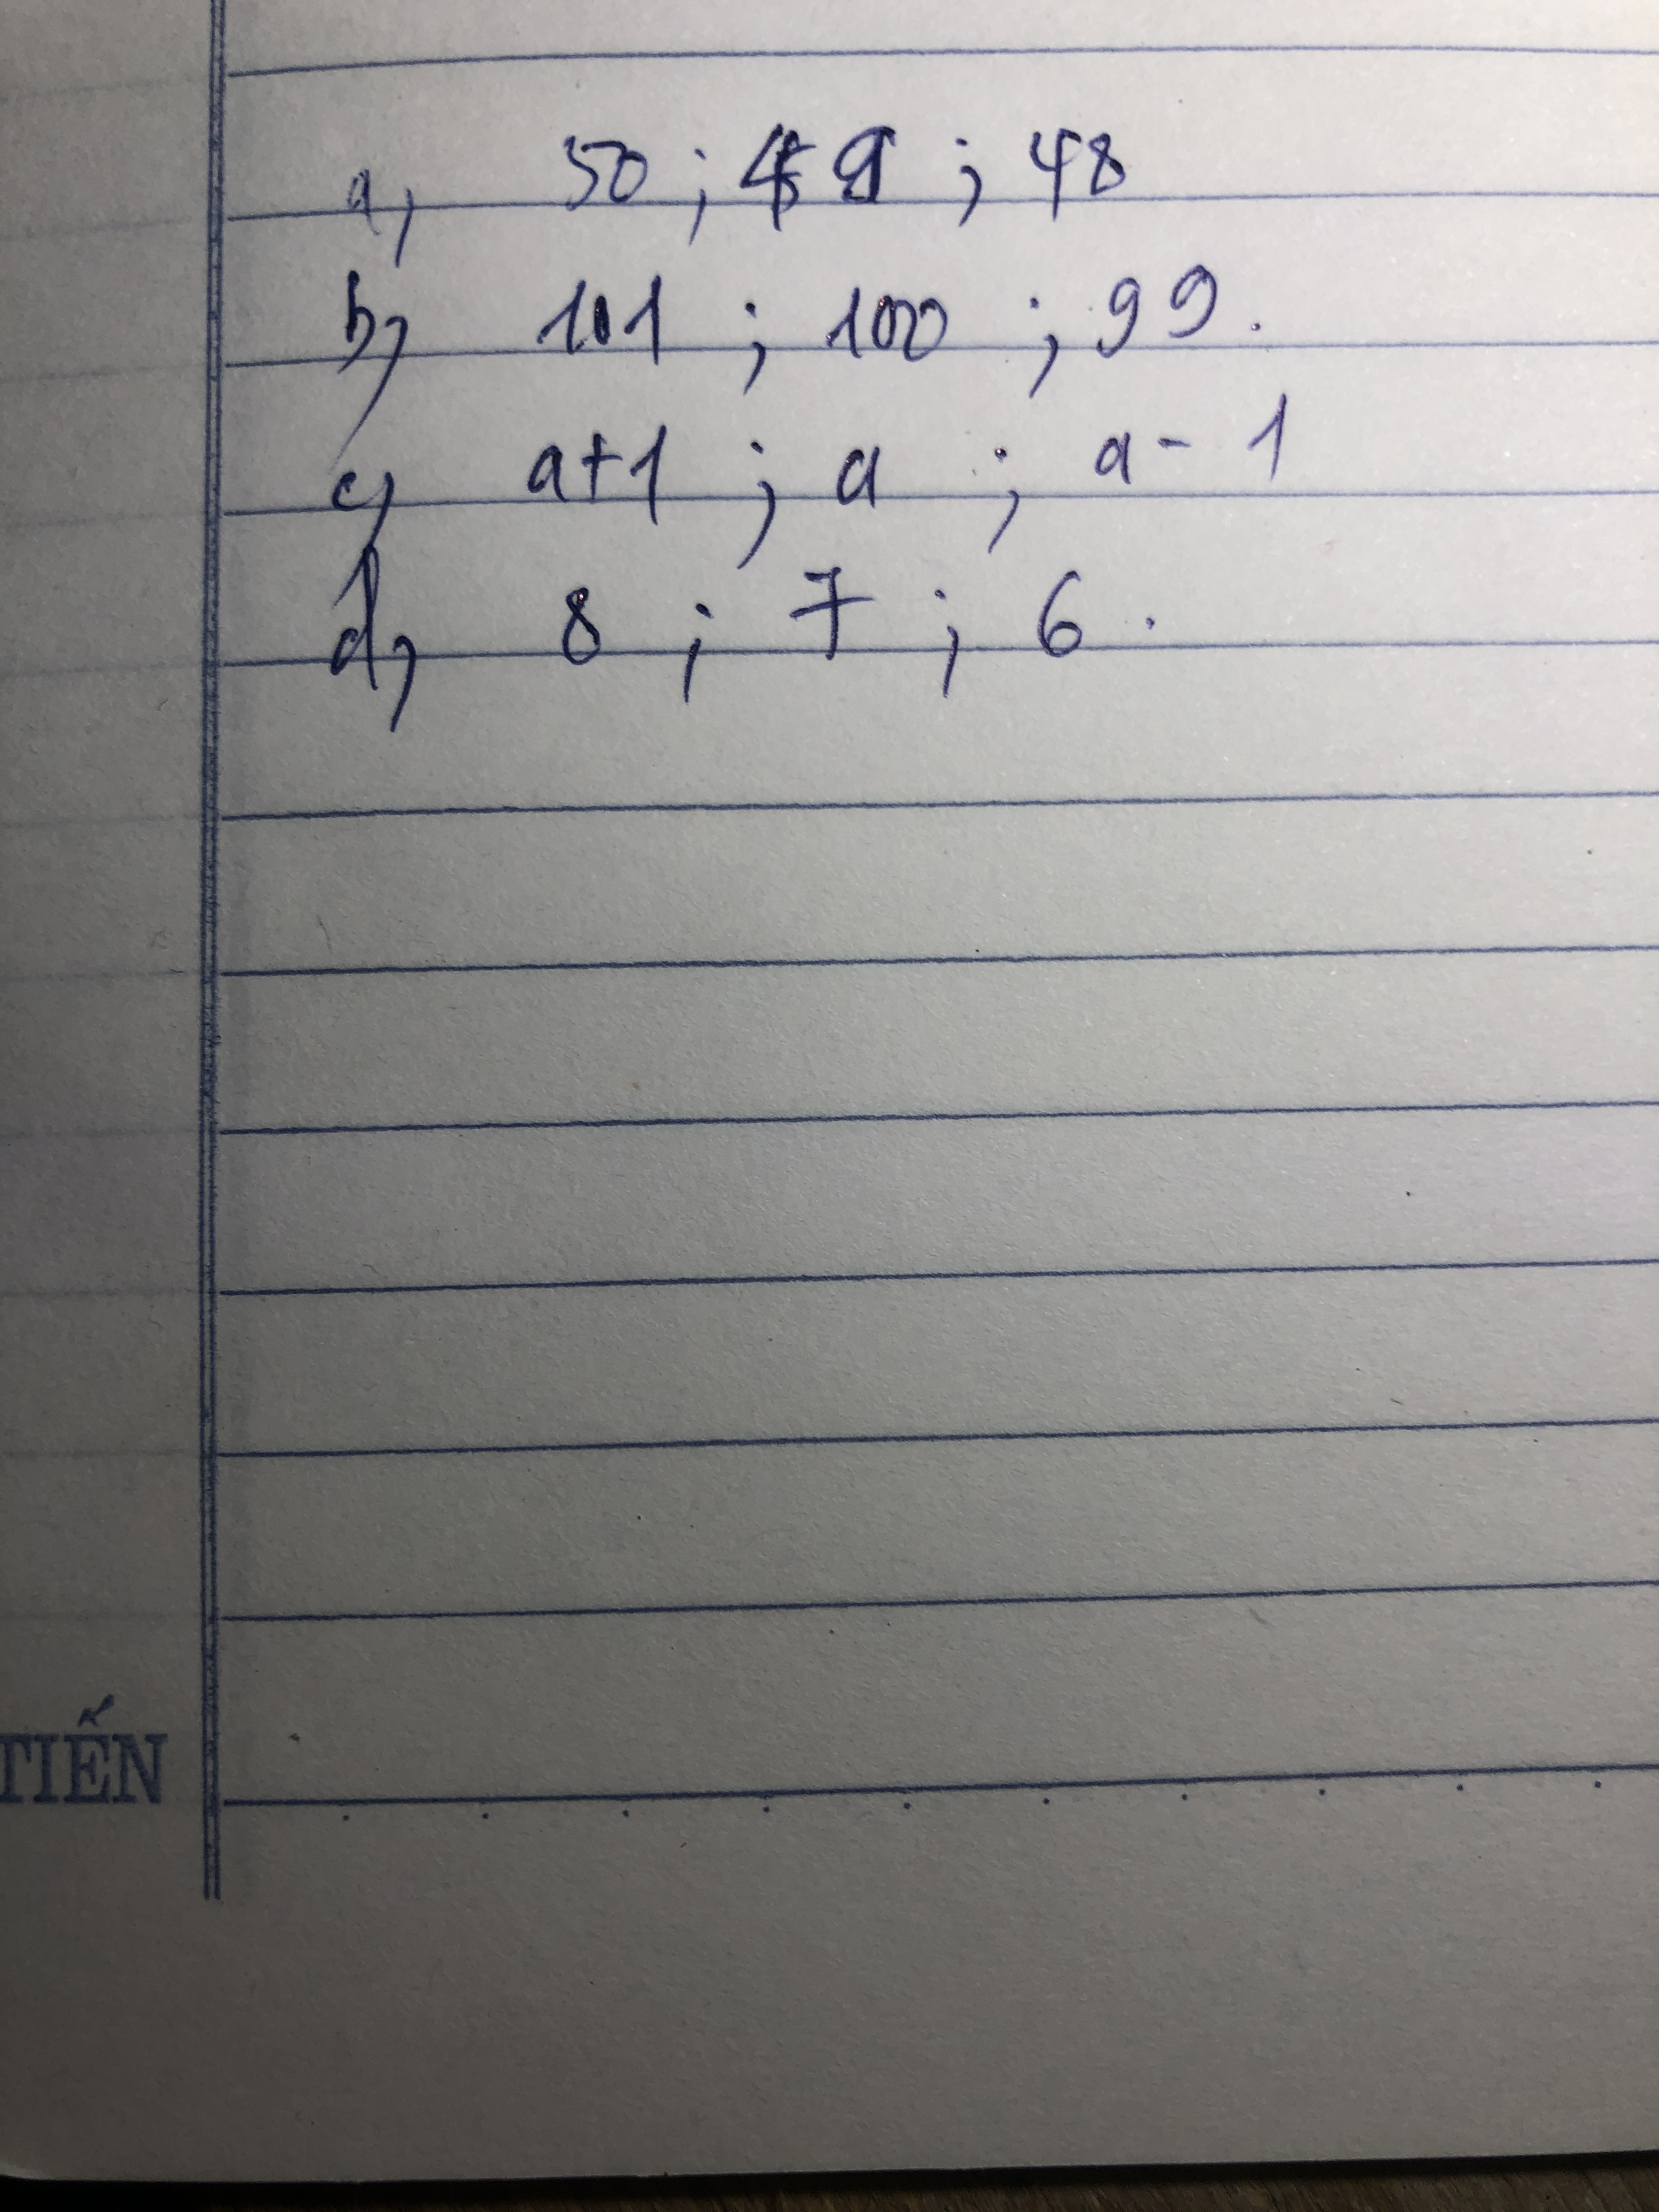 a, 50 ; 49 ; 48
b, 101 ; 100 ; 99.
c, a+1 ; a ; a - 1
d, 8 ; 7 ; 6.
TIẾN